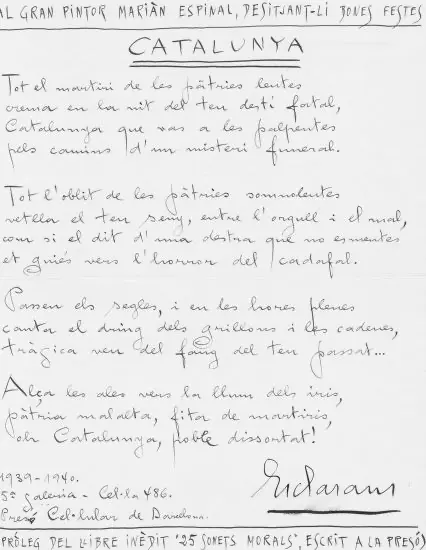 AL GRAN PINTOR MARIÀN ESPINAL, DESITJANT-LI BONES FESTES
CATALUNYA
Tot el martiri de les pàtries lentes
crema en la nit del teu destí fatal,
Catalunya que vas a les palpentes
pels camins d'un misteri funeral.
Tot l'oblit de les pàtries somnolentes
vetlla el teu seny, entre l'orgull i el mal,
com si el dit d'una destra que no esmentes
et guiés vers l'horror del cadafal.
Passen els segles, i en les hores plenes
canta el dring dels grillons i les cadenes,
tràgica veu del fang del teu passat...
Alça les ales vers la llum dels iris,
pàtria malalta, fita de martiris,
oh Catalunya, poble dissortat!
1939-1940.
5ª galeria - Cel·la 486.
Presó Cel·lular de Barcelona.
PRÒLEG DEL LLIBRE INÈDIT "25 SONETS MORALS", ESCRIT A LA PRESÓ)